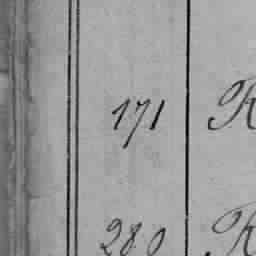 171 R
280 R